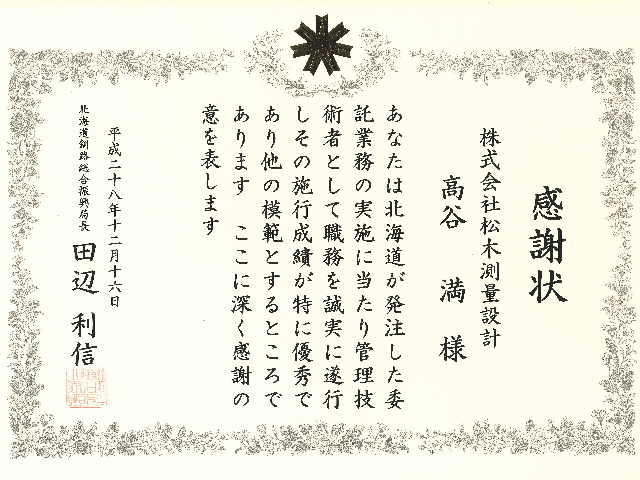 感謝状
株式会社松木測量設計
高谷 満 様
あなたは北海道が発注した委
託業務の実施に当たり管理技
術者として職務を誠実に遂行
しその施行成績が特に優秀で
あり他の模範とするところで
あります ここに深く感謝の
意を表します
平成二十八年十二月十六日
北海道釧路総合振興局長 田辺 利信